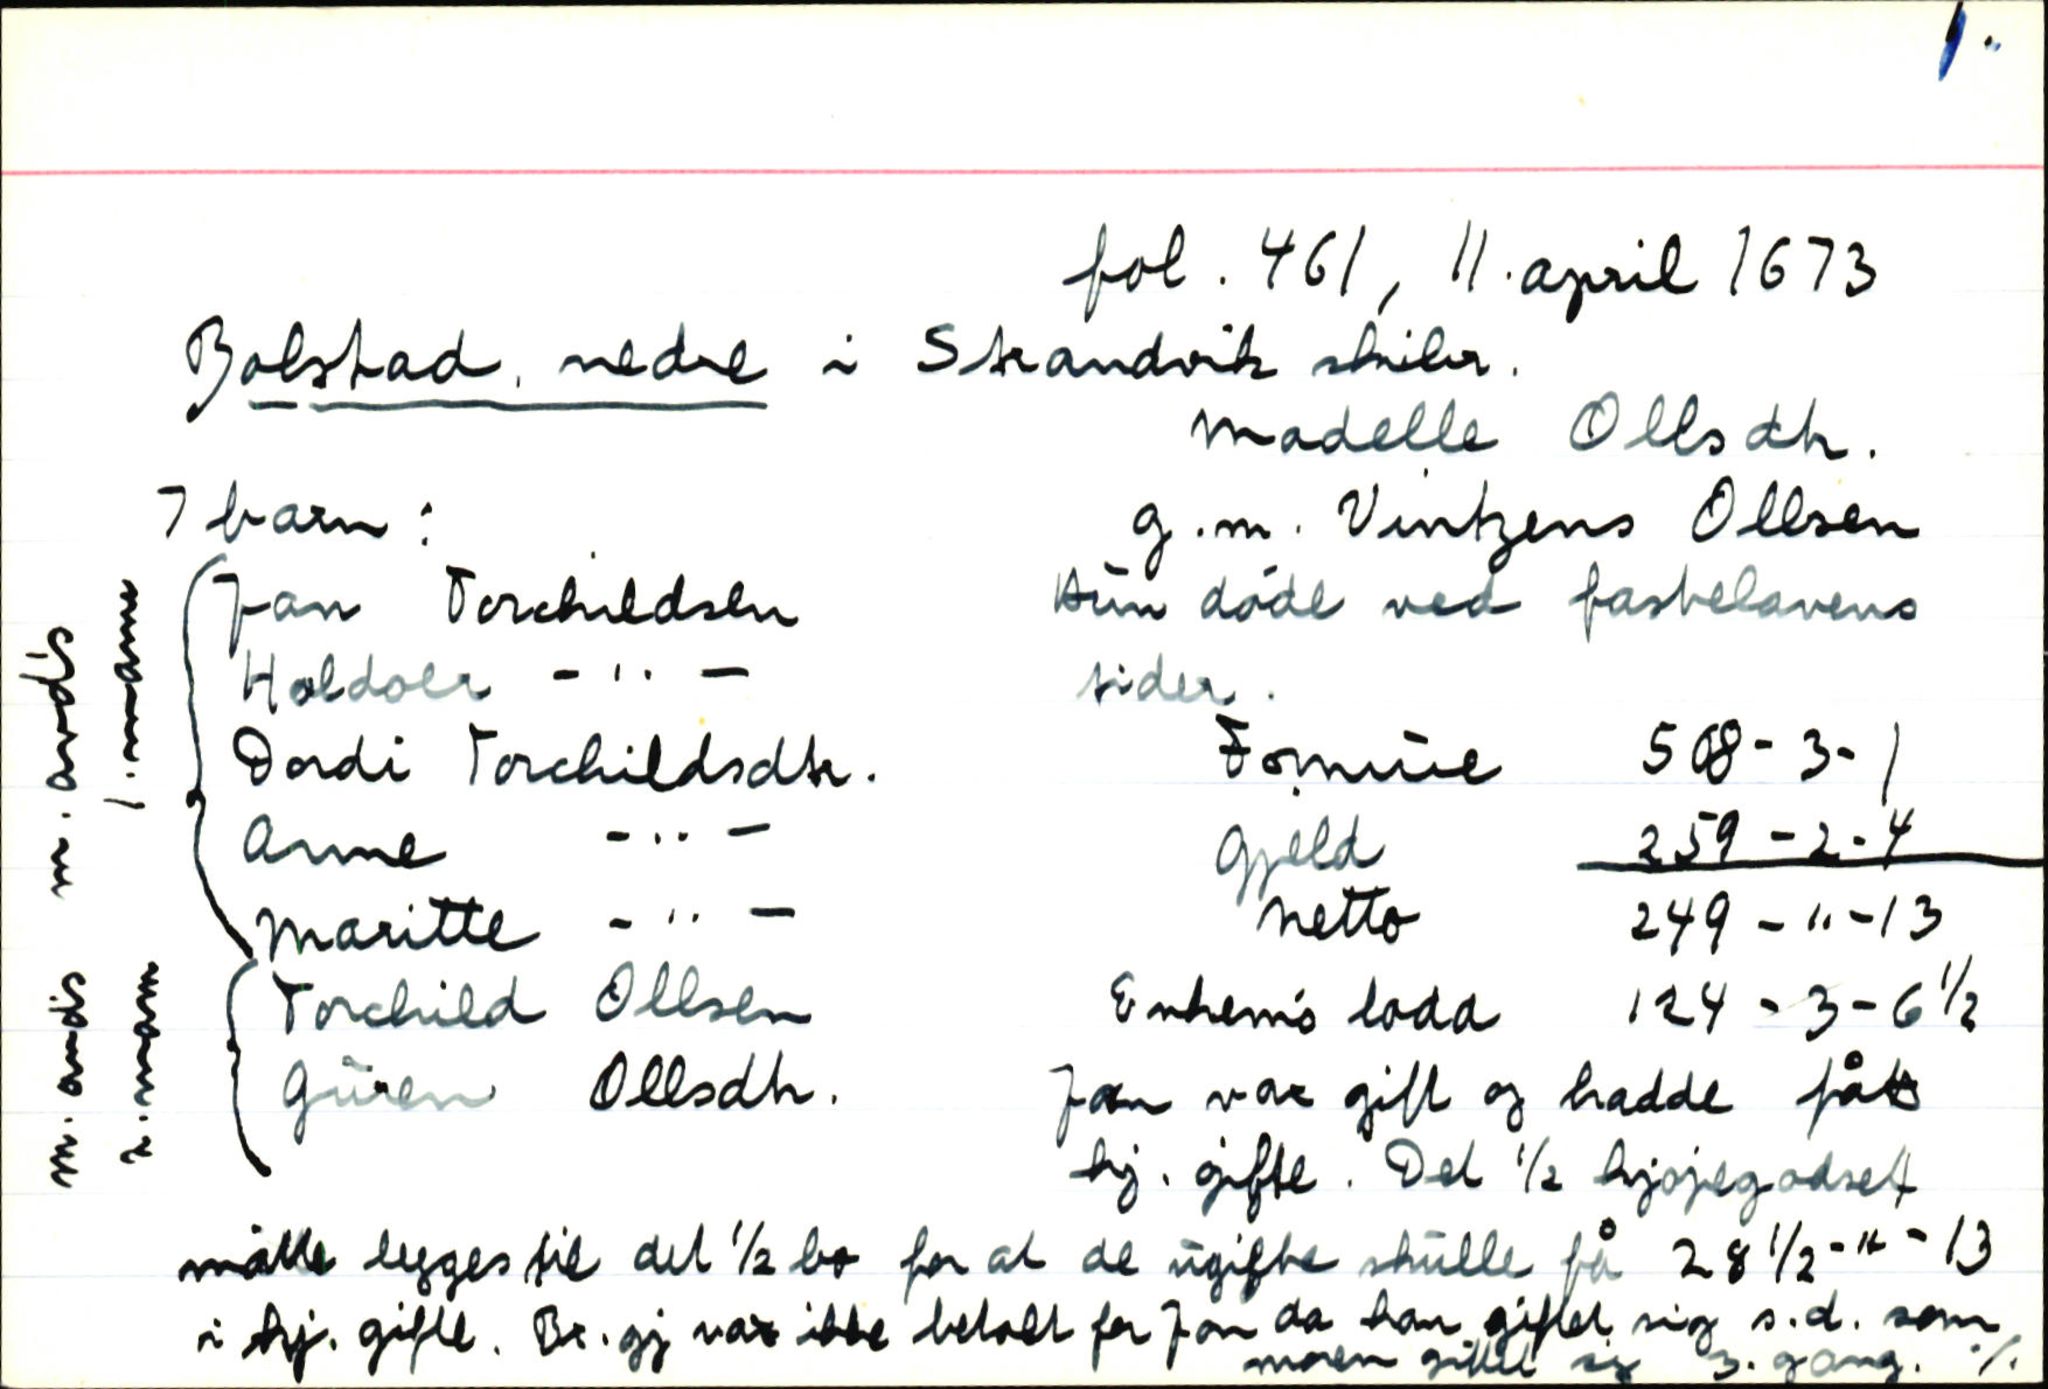 1.
fol. 461, 11. april 1673
Bolstad, nedre i Strandvik skibr.
Madelle Ollsdtr.
7 barn: g.m. Vintzens Ollsen
Jan Torchildsen Hun døde ved fastelavens
Holdoer - " - tider.
Dordi Torchildsdtr. Formue 508-3-1
Anne - " - Gjeld 259-2-4
Maritte - " - Netto 249-"-13
Torchild Ollsen Enkem's lodd 124-3-6 1/2
Guren Ollsdtr. Jan var gift og hadde fått
hj. gifte. Det 1/2 kjøjegodset
måtte legges til det 1/2 bo for at de ugifte skulle få 28 1/2-"-13
i hj. gifte. Br. gj var ikke betalt for Jan da han giftet sig s.d. som
moren giftet sig 3. gang. ./.
m. avd's
1. mann
m. avd's
2. mann